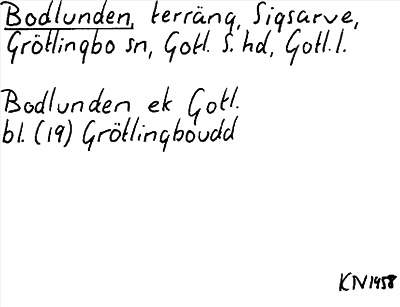 Bodlunden, terräng, Sigsarve,
Grötlingbo sn, Gotl. S. hd, Gotl. l.
Bodlunden ek Gotl.
bl. (19) Grötlingboudd
KN 1958